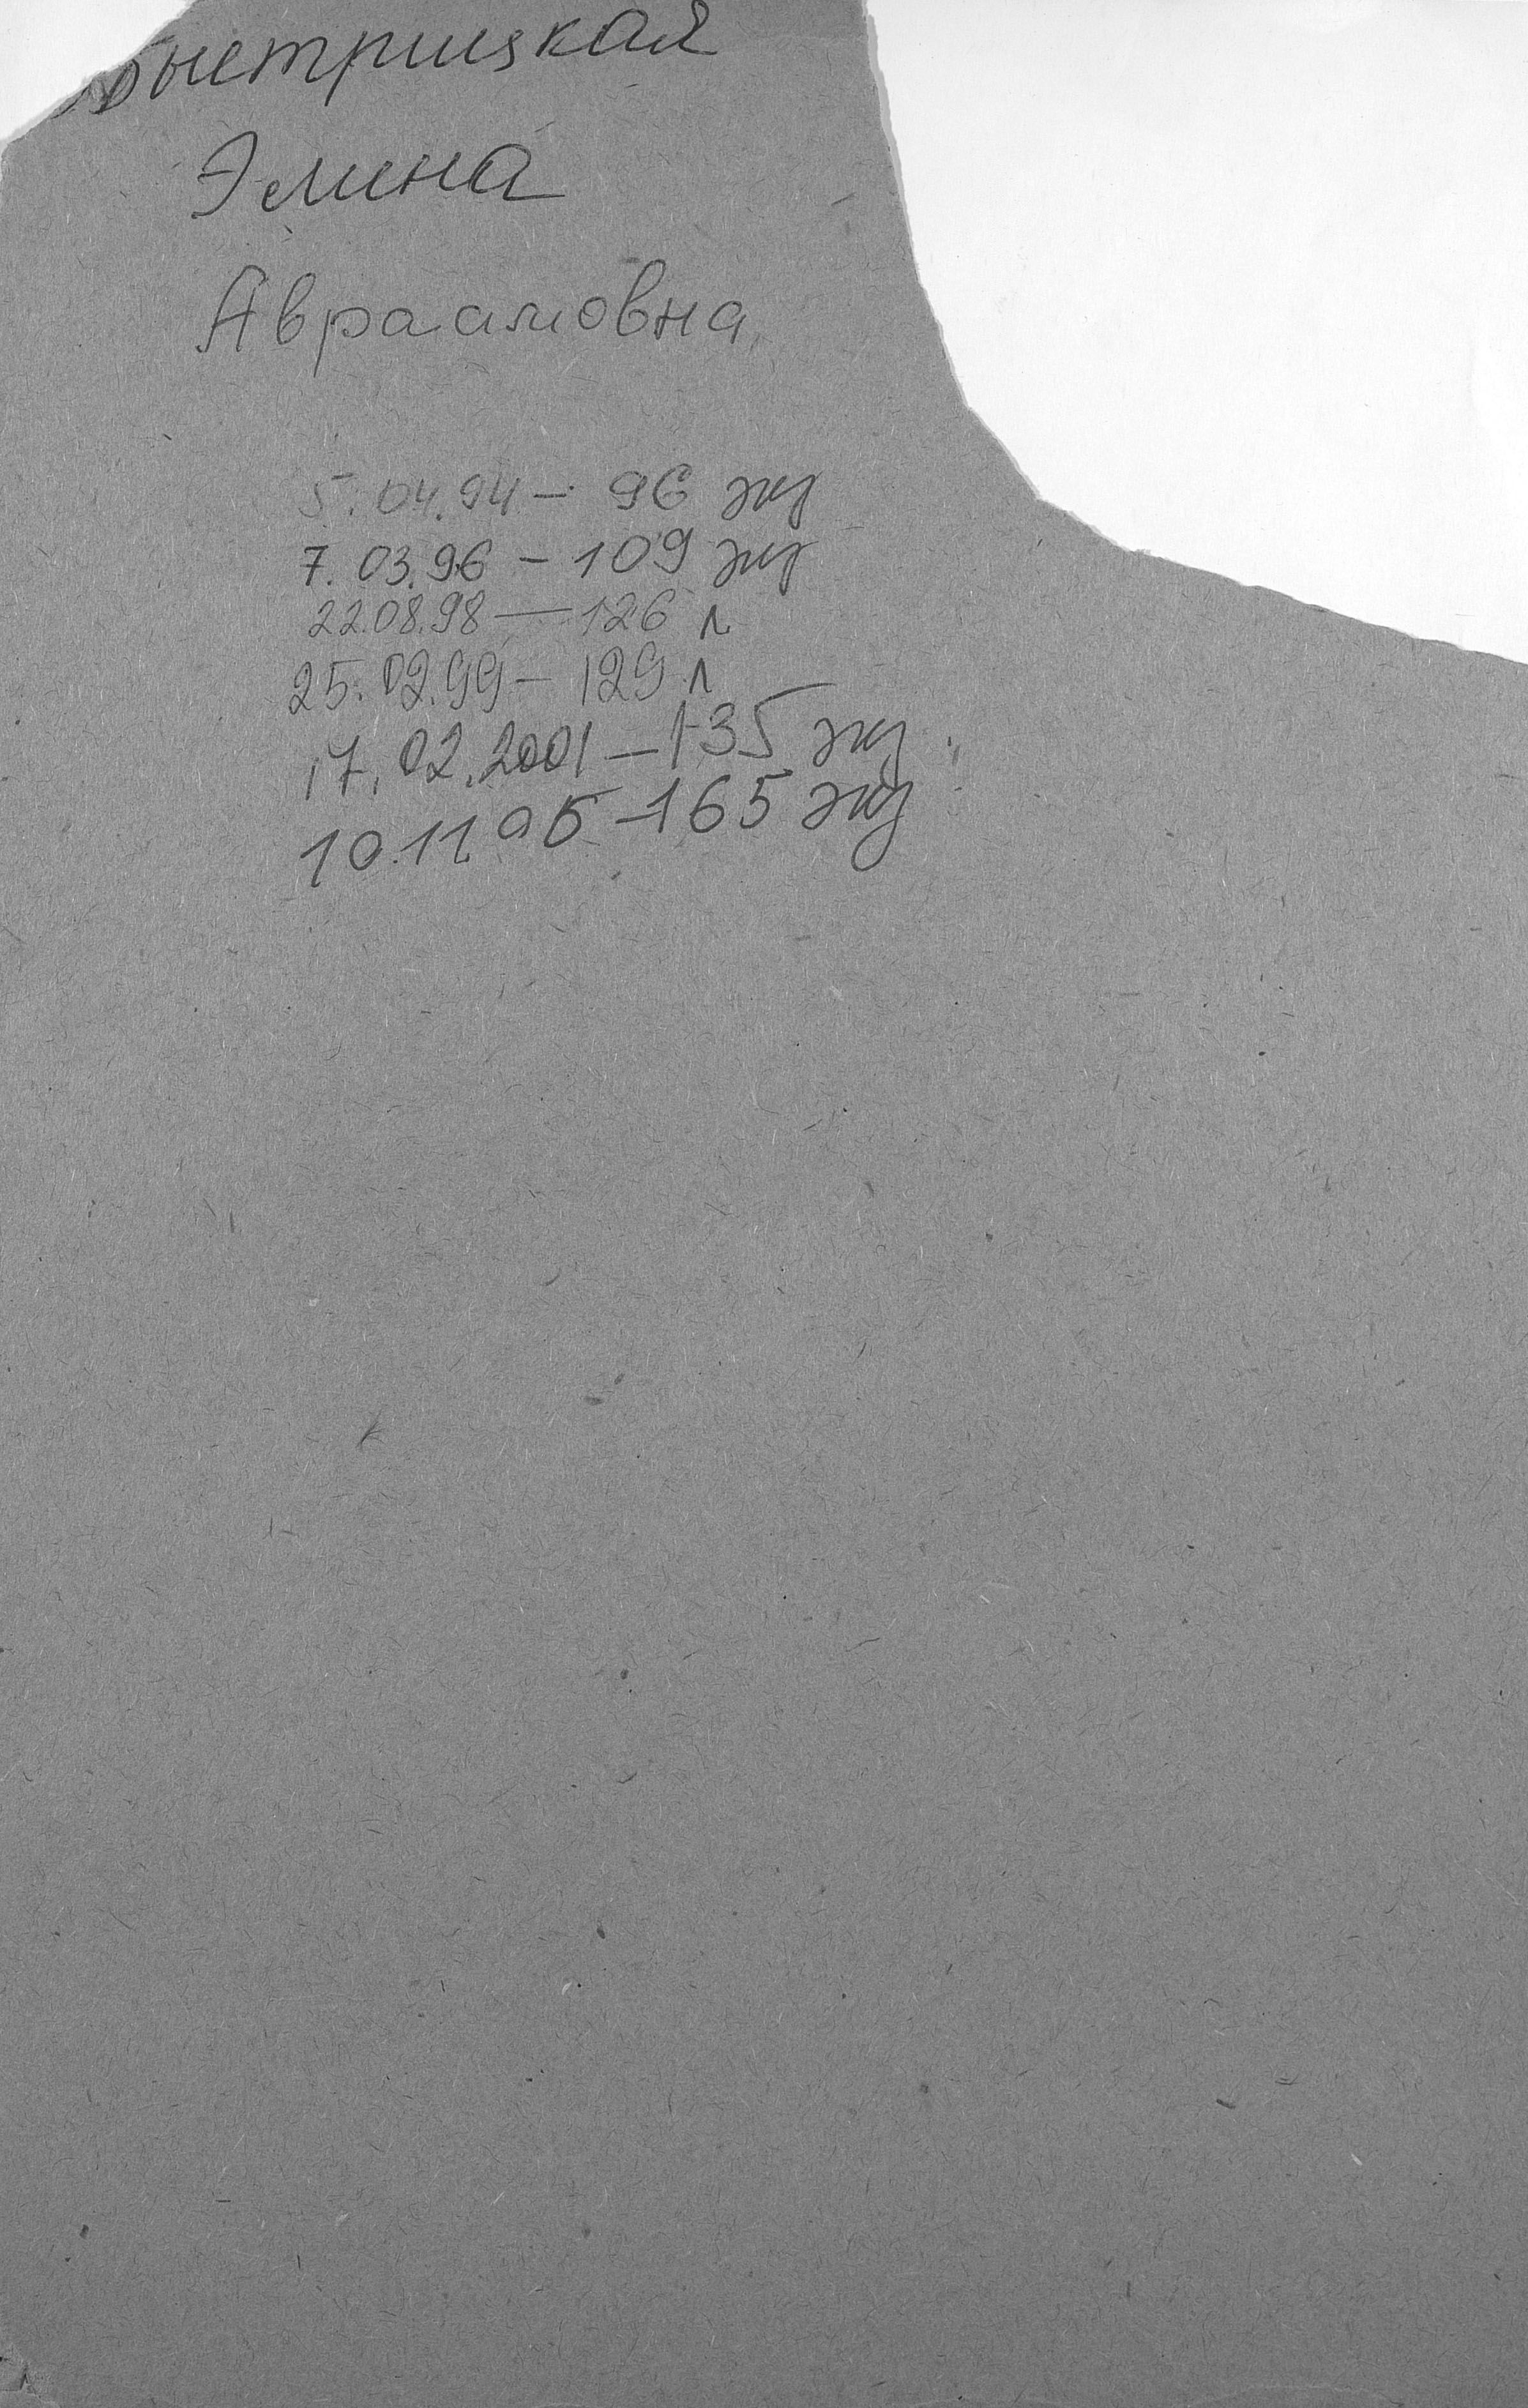 Быстрицкая
Элина
Авраамовна
5.04.94 – 96 экз
7.03.96 – 109 экз
22.08.98 — 126 л
25.02.99 – 129 л
17.02.2001 – 135 экз
10.11.05 – 165 экз